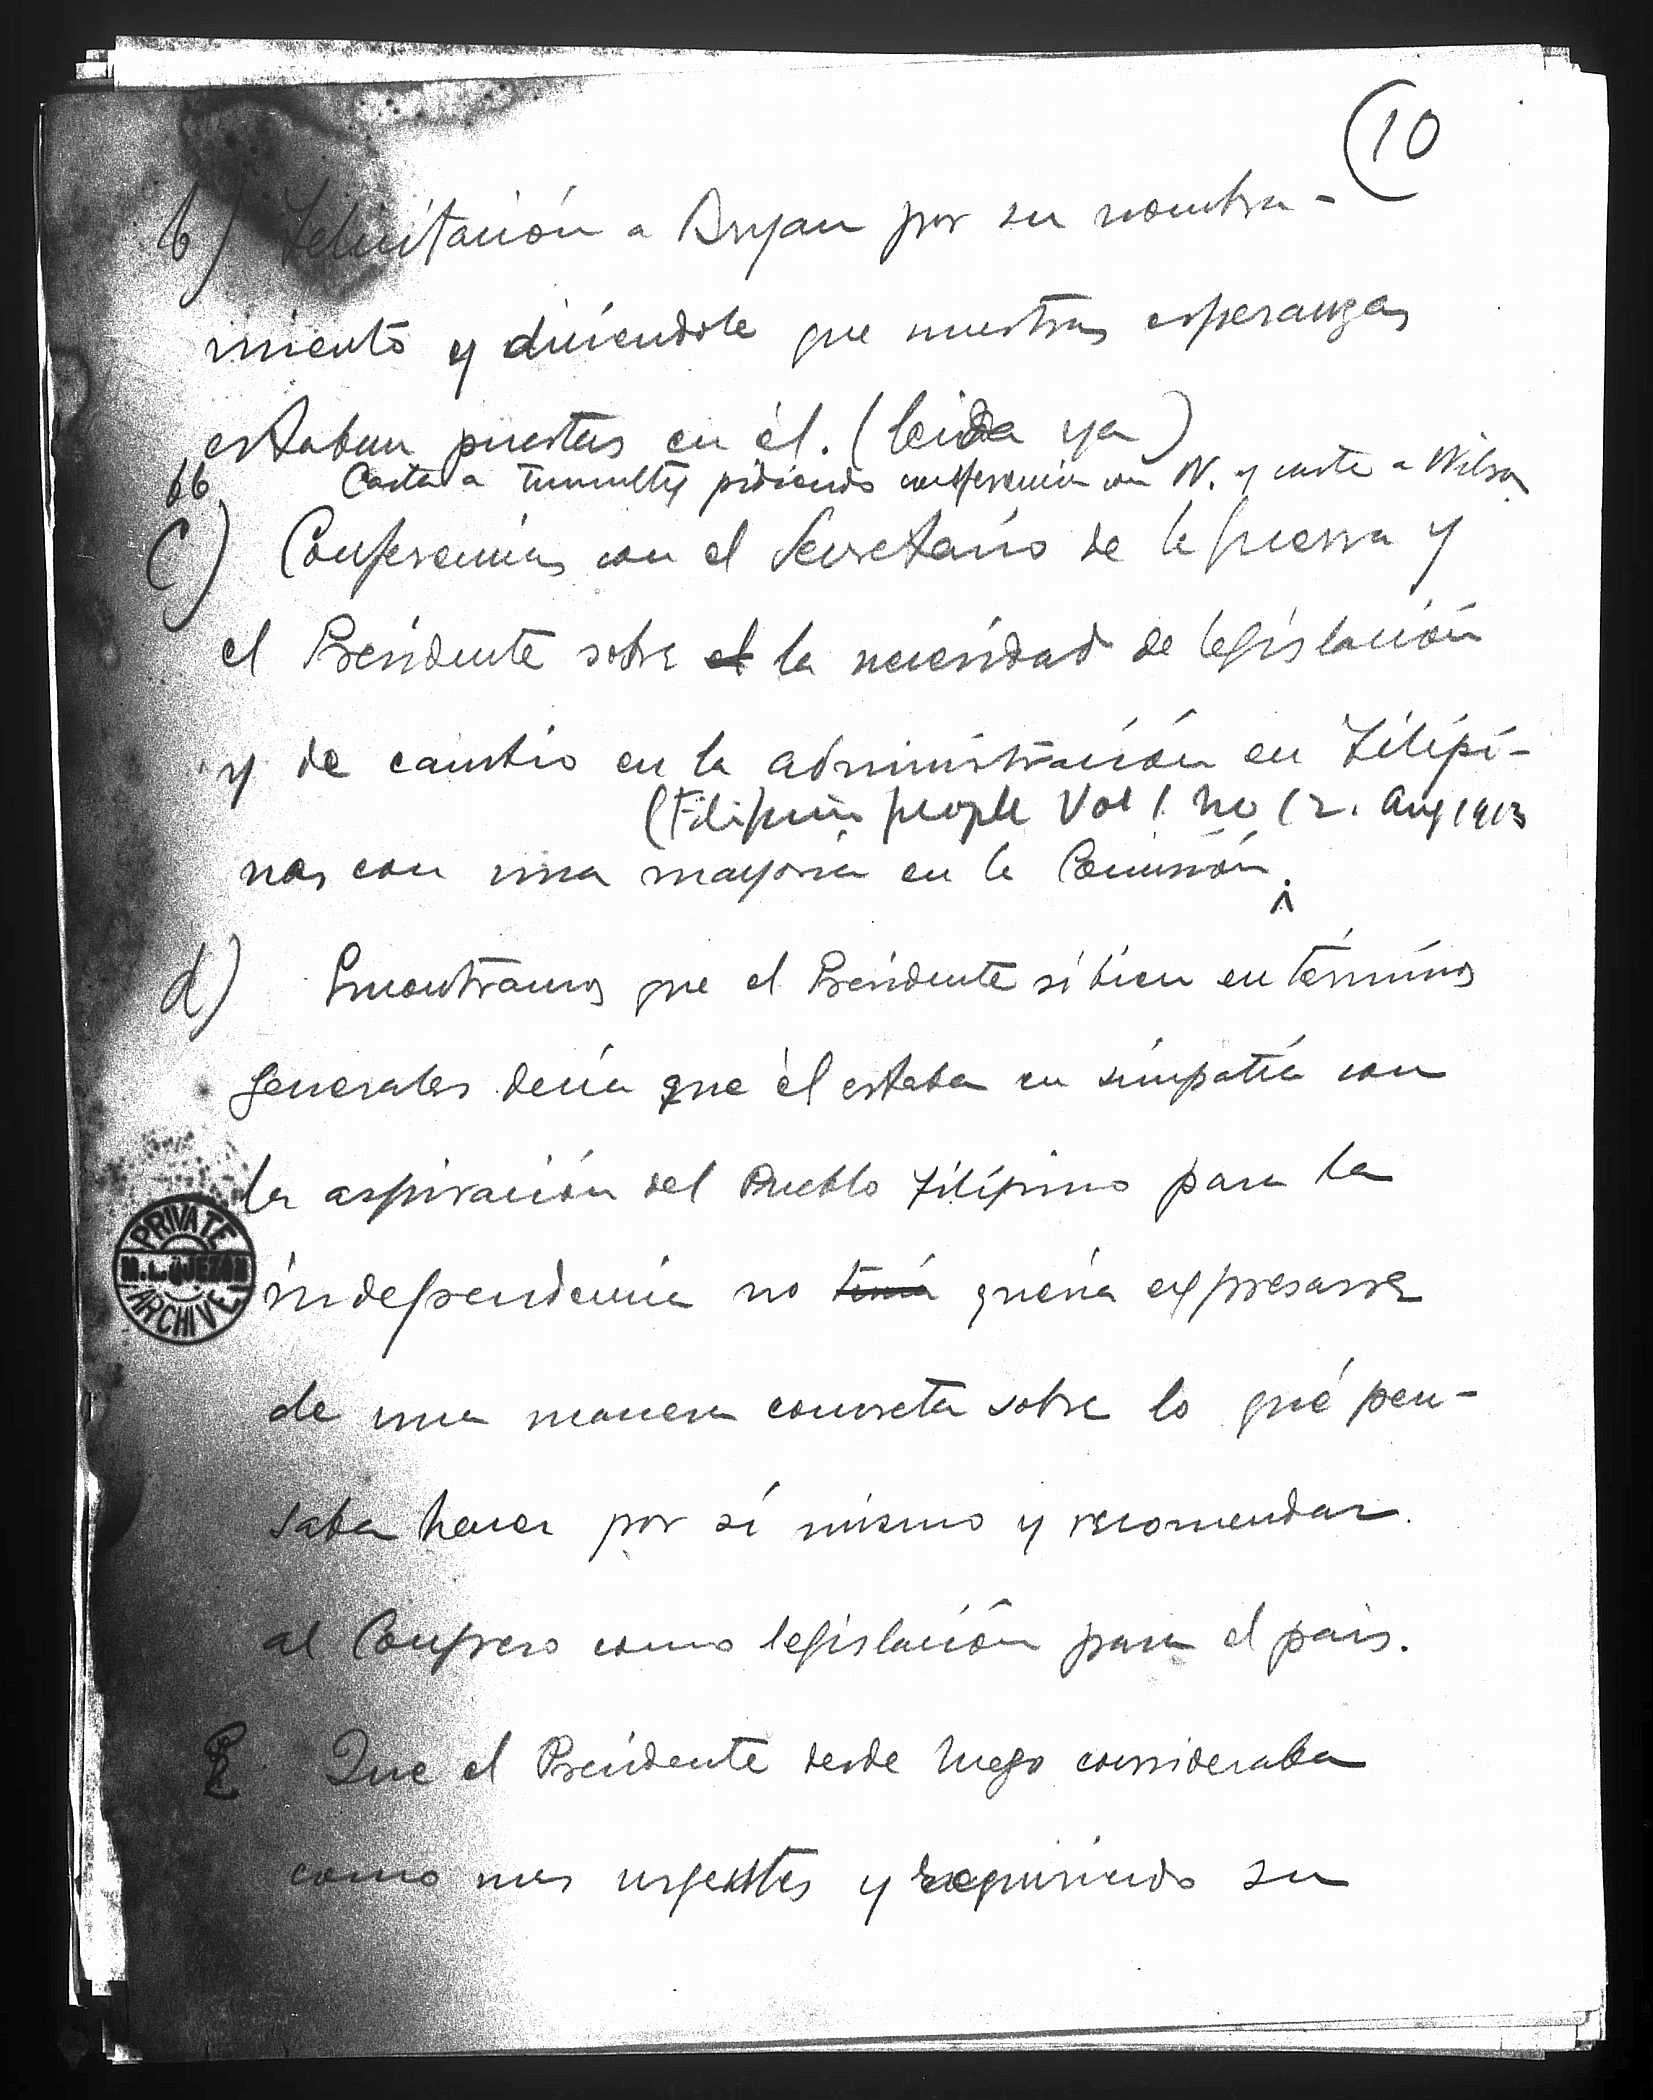 (10
b) Felicitación a Bryan por su nombra-
miento y diciendole que nuestras esperanzas
estaban puestas en él. (leida ya)
bb Carta a Tumulty pidiendo conferencia con W. y carta a Wilson
c) Conferencias con el Secretario de la Guerra y
el Presidente sobre el la necesidad de legislación
y de cambio en la administración en Filipi-
(Filipino people Vol 1. No 12. Aug 1913
nas con una mayoria en la Comisión.
d) Encontramos que el Presidente si bien en términos
generales decia que él estaba en simpatía con
la aspiración del Pueblo Filipino para la
PRIVATE
M. L. QUEZON
ARCHIVE
independencia no tenía quería expresarse
de una manera concreta sobre lo qué pen-
saba hacer por sí mismo y recomendar.
al Congreso como legislación para el pais.
E Que el Presidente desde luego consideraba
como mas urgentes y requiriendo su